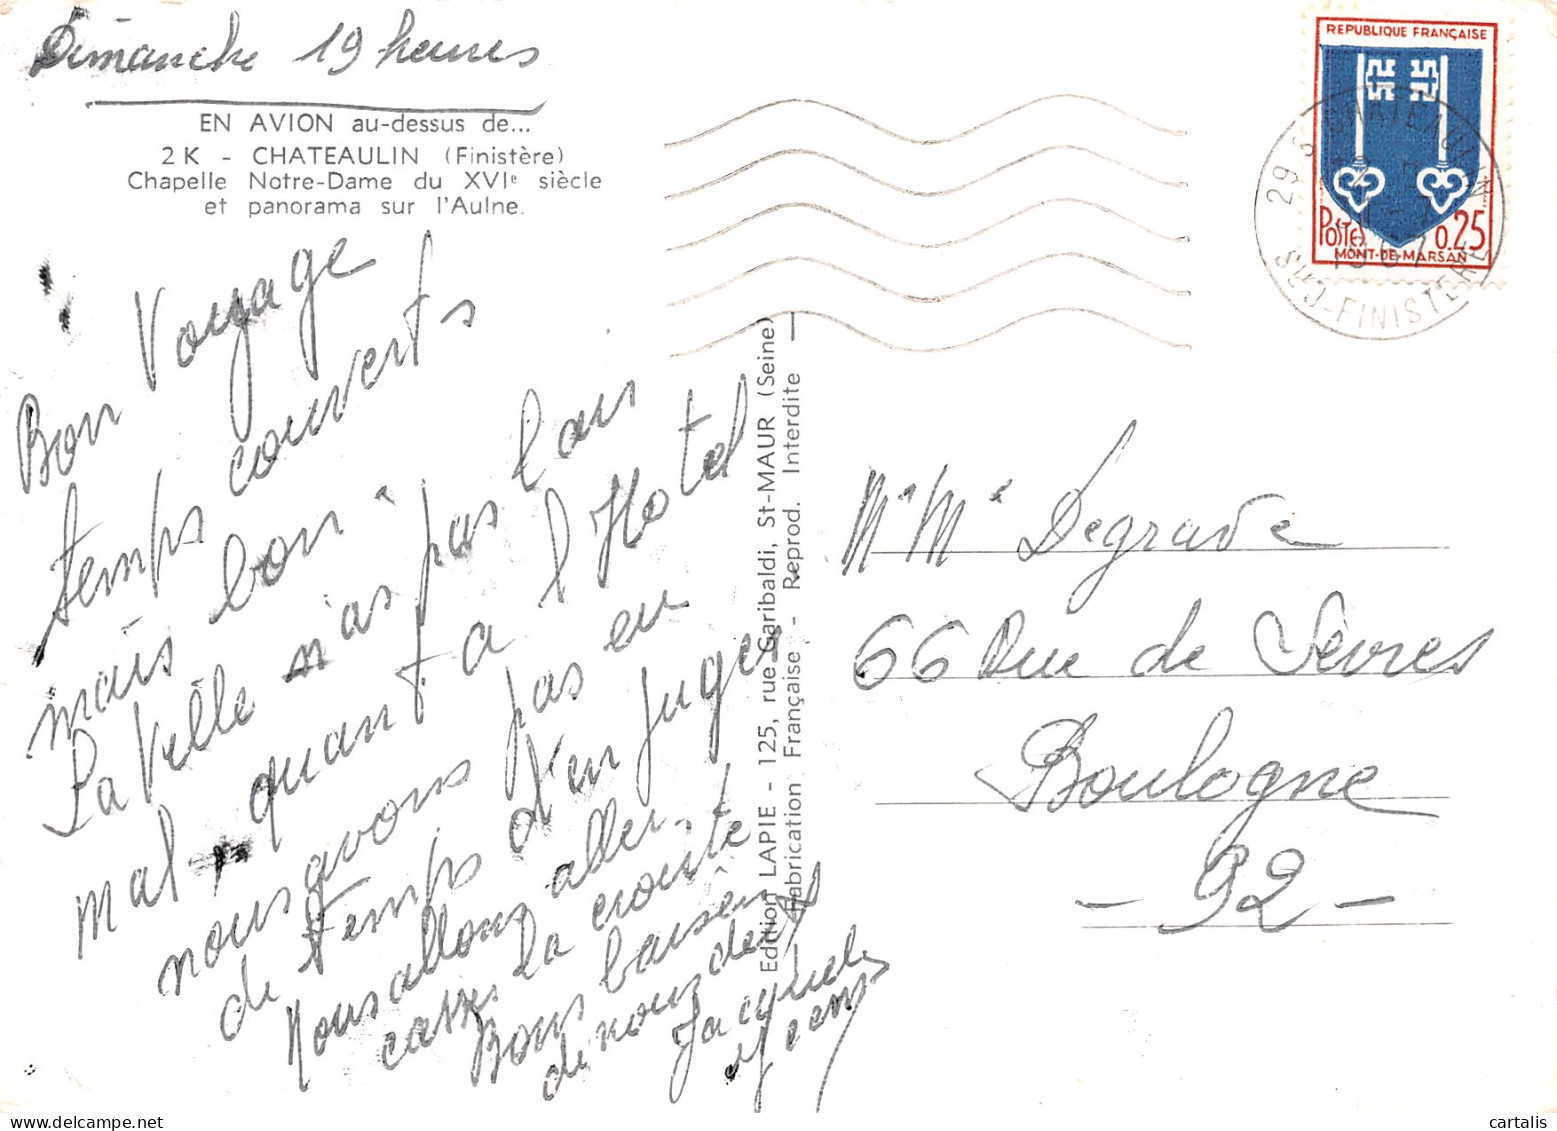 Dimanche 19 heures
EN AVION au-dessus de...
2 K - CHATEAULIN (Finistère)
Chapelle Notre-Dame du XVIe siècle
et panorama sur l'Aulne.
Bon Voyage
temps couverts
mais bon.
La Ville n'as pas l'air
mal quant a l'Hotel
nous avons pas eu
de temps d'en juger
Nous allons aller
casser la croute
Bons baisers
de nous deux
Jacqueline
et Jean
Edition LAPIE - 125, rue Garibaldi, St-MAUR (Seine)
Fabrication Française - Reprod. Interdite
REPUBLIQUE FRANÇAISE
POSTES 0,25
MONT-DE-MARSAN
29 S CHATEAULIN
1967
SUD-FINISTERE
Mr Me Degrave
66 Rue de Sèvres
Boulogne
- 92 -
cartalis